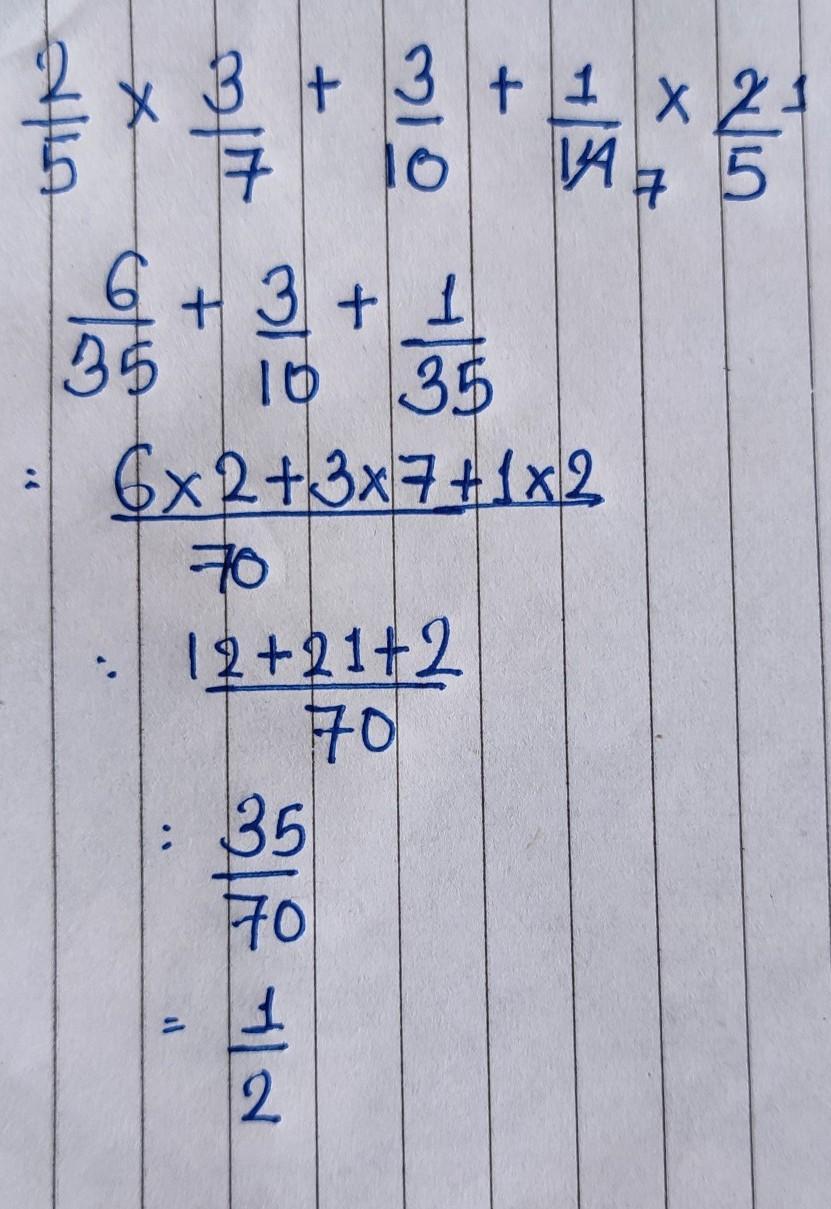 2/5 × 3/7 + 3/10 + 1/14 7 × 2/5 1
6/35 + 3/10 + 1/35
= 6×2+3×7+1×2 / 70
∴ 12+21+2 / 70
: 35/70
= 1/2